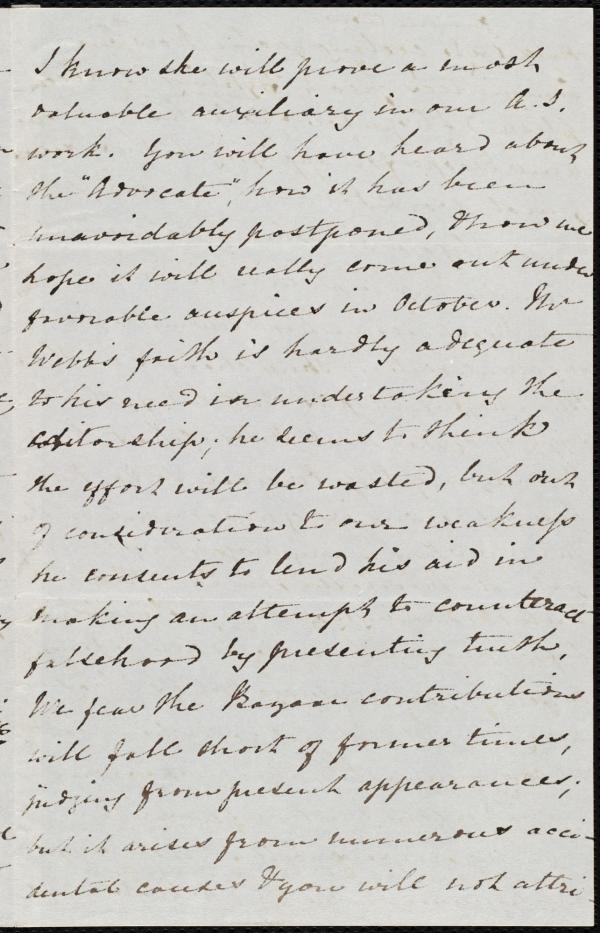 I know she will prove a most
valuable auxiliary in our A.S.
work. You will have heard about
the "Advocate", how it has been
unavoidably postponed, & how we
hope it will really come out under
favorable auspices in October. Mr
Webb's faith is hardly adequate
to his need in undertaking the
editorship; he seems to think
the effort will be wasted, but out
of consideration to our weakness
he consents to lend his aid in
making an attempt to counteract
falsehood by presenting truth,
We fear the Bazaar contributions
will fall short of former times,
judging from present appearances;
but it arises from numerous acci-
dental causes & you will not attri-